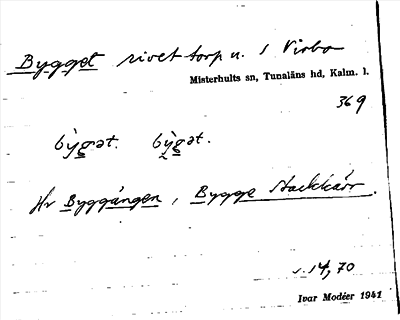 Bygget rivet torp u. 1 Virbo
Misterhults sn, Tunaläns hd, Kalm. l.
369
by̆gət. by̆gət.
Hr Byggängen, Bygge Stackkärr.
s. 14, 70
Ivar Modéer 1941